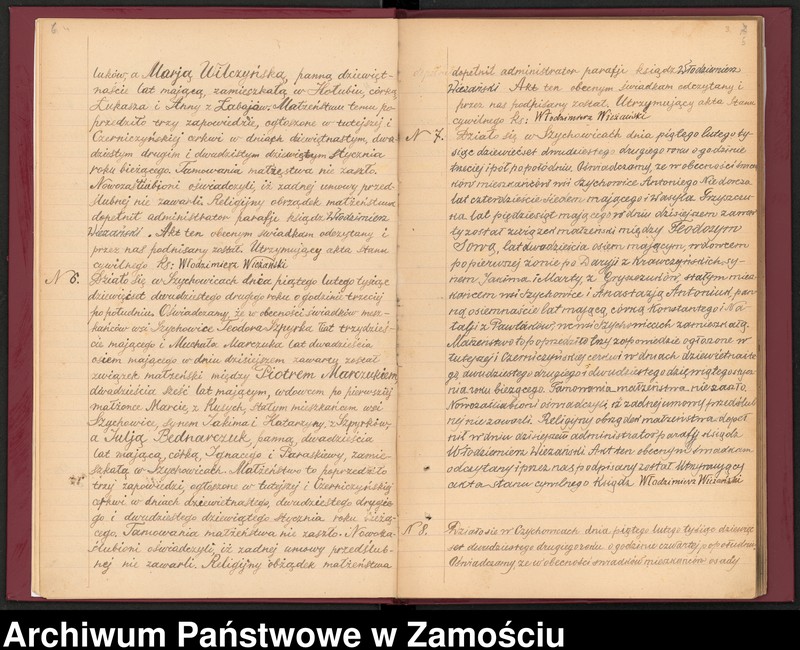 luków, a Marją Wilczyńską, panną dziewięt-
naście lat mającą, zamieszkałą w Hołubiu, córką
Łukasza i Anny z Łabajów. Małżeństwu temu po-
przedziło trzy zapowiedzie, ogłoszone w tutejszej i
Czerniczyńskiej cerkwi w dniach dziewiętnastym, dwu-
dziestym drugim i dwudziestym dziewiątym stycznia
roku bieżącego. Tamowania małżeństwa nie zaszło.
Nowozaślubieni oświadczyli, iż żadnej umowy przed-
ślubnej nie zawarli. Religijny obrządek małżeństwa
dopełnił administrator parafji ksiądz Włodzimierz
. Akt ten obecnym świadkom odczytany i
przez nas podpisany został. Utrzymujący akta stanu
cywilnego Ks: Włodzimierz
N 6. Działo się w Szychowicach dnia piątego lutego tysiąc
dziewięćset dwudziestego drugiego roku o godzinie trzeciej
po południu. Oświadczamy, że w obecności świadków miesz-
kańców wsi Szychowice Teodora Szpyrka lat trzydzieś-
cie mającego i Michała Marczuka lat dwadzieścia
osiem mającego w dniu dzisiejszem zawarty został
związek małżeński między Piotrem Marczukiem,
dwadzieścia sześć lat mającym, wdowcem po pierwszej
małżonce Marcie, z Kusych, stałym mieszkańcem wsi
Szychowice, synem Jakima i Katarzyny, z Szpyrków,
a Julją Bednarczuk, panną, dwadzieścia
lat mającą, córką Ignacego i Paraskiewy, zamie-
szkałą w Szychowicach. Małżeństwo to poprzedziło
trzy zapowiedzi, ogłoszone w tutejszej i Czerniczyńskiej
cerkwi w dniach dziewiętnastego, dwudziestego drugie-
go i dwudziestego dziewiątego stycznia roku bieżą-
cego. Tamowania małżeństwa nie zaszło. Nowoza-
ślubieni oświadczyli, iż żadnej umowy przedślub-
nej nie zawarli. Religijny obrządek małżeństwa
dopełnił administrator parafji ksiądz Włodzimierz
. Akt ten obecnym świadkom odczytany i
przez nas podpisany został. Utrzymujący akta Stanu
cywilnego Ks: Włodzimierz
N 7. Działo się w Szychowicach dnia piątego lutego ty-
siąc dziewięćset dwudziestego drugiego roku o godzinie
trzeciej i pół po południu. Oświadczamy, że w obecności świad-
ków mieszkańców wsi Szychowice Antoniego Niedorcza
lat czterdzieście siedem mającego i Wasyla
lat pięćdziesiąt mającego w dniu dzisiejszem zawar-
ty został związek małżeński między Teodozym
Sową, lat dwadzieścia osiem mającym, wdowcem
po pierwszej żonie po Darji z Krawczyńskich, sy-
nem Jakima i Marty, z Gryszczuków, stałym miesz-
kańcem wsi Szychowice i Anastazją Antoniuk, pan-
ną osiemnaście lat mającą, córką Konstantego i Na-
talji z Pawluków, we wsi Szychowicach zamieszkałą.
Małżeństwo to poprzedziło trzy zapowiedzie ogłoszone w
tutejszej i Czerniczyńskiej cerkwi w dniach dziewiętnaste-
go, dwudziestego drugiego i dwudziestego dziewiątego stycz-
nia roku bieżącego. Tamowania małżeństwa nie zaszło.
Nowozaślubieni oświadczyli, iż żadnej umowy przedślub-
nej nie zawarli. Religijny obrządek małżeństwa dopeł-
nił w dniu dzisiejszem administrator parafji Ksiądz
Włodzimierz . Akt ten obecnym świadkom
odczytany i przez nas podpisany został. Utrzymujący
akta stanu cywilnego Ksiądz Włodzimierz
N 8. Działo się w Szychowicach dnia piątego lutego tysiąc dziewięć-
set dwudziestego drugiego roku o godzinie czwartej po południu.
Oświadczamy, że w obecności świadków mieszkańców osady
Archiwum Państwowe w Zamościu